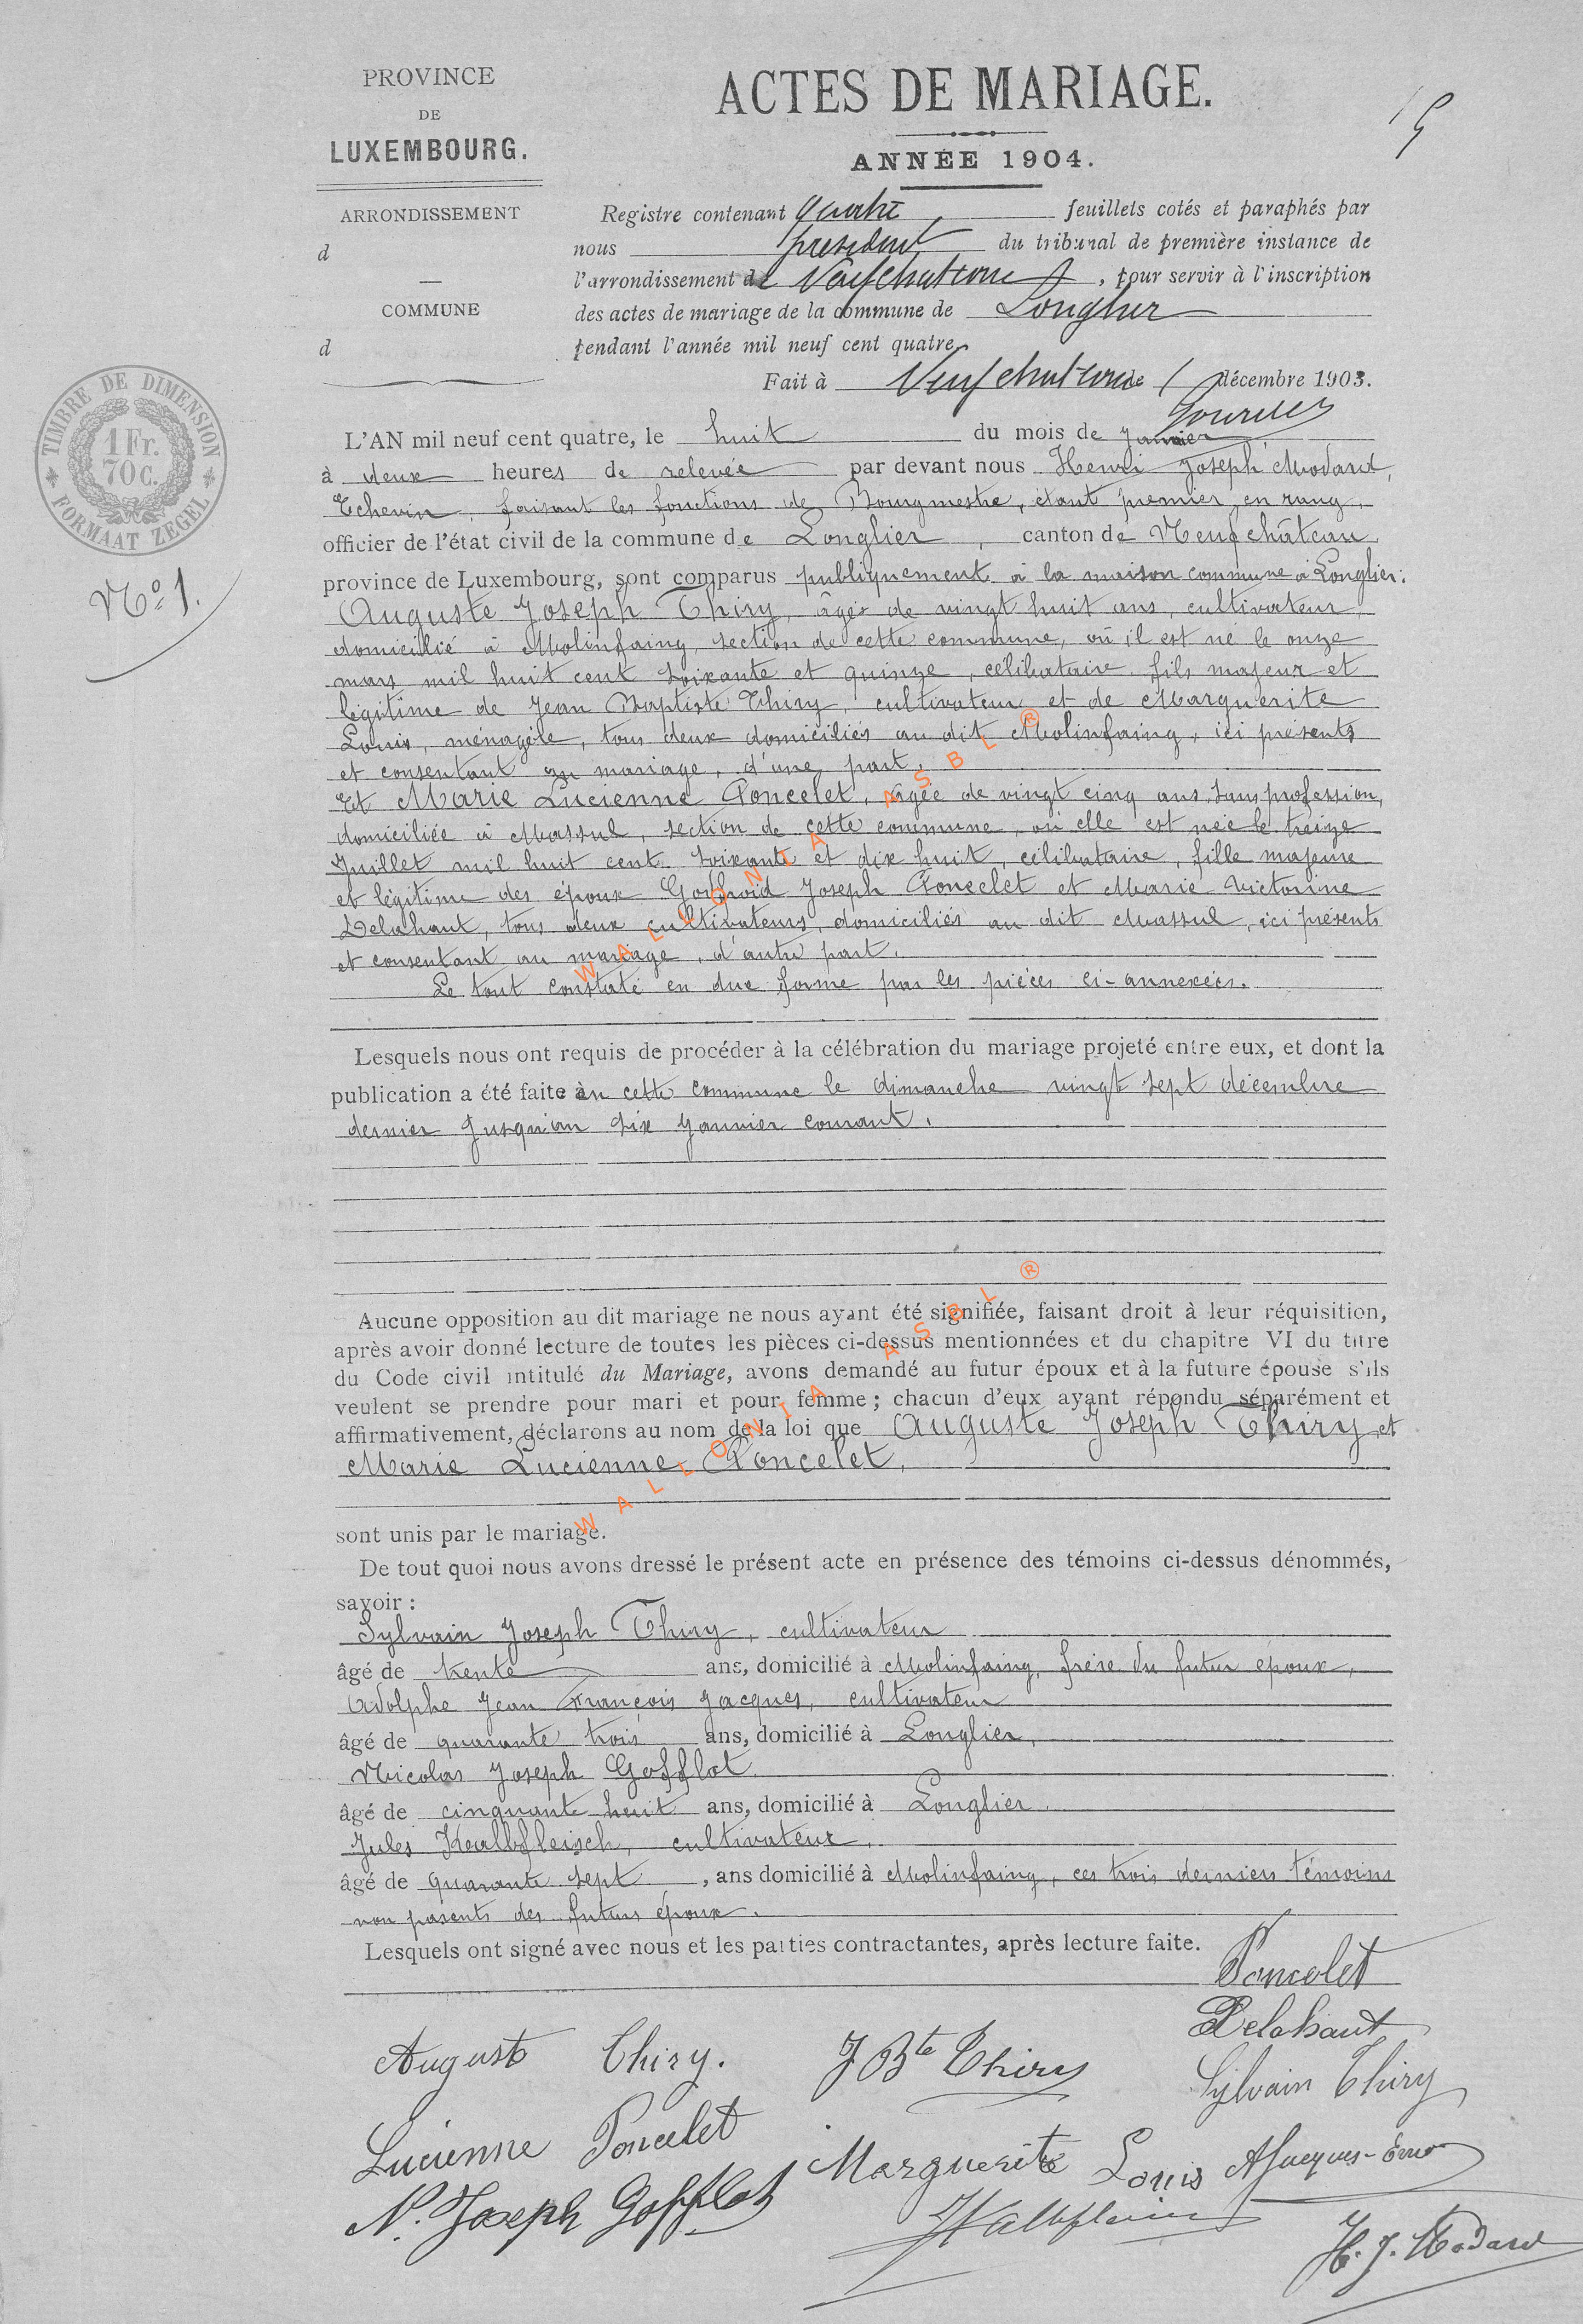 PROVINCE
DE
LUXEMBOURG.
ARRONDISSEMENT
d
COMMUNE
d
TIMBRE DE DIMENSION
1 Fr.
70 C.
FORMAAT ZEGEL
No 1.
ACTES DE MARIAGE.
ANNÉE 1904.
Registre contenant quatre feuillets cotés et paraphés par
nous président du tribunal de première instance de
l'arrondissement de Neufchateau, pour servir à l'inscription
des actes de mariage de la commune de Longlier
pendant l'année mil neuf cent quatre.
Fait à Neufchateau le 1 décembre 1903.
L'AN mil neuf cent quatre, le huit du mois de janvier
à deux heures de relevée par devant nous Henri Joseph Modard,
Echevin, faisant les fonctions de Bourgmestre, étant premier en rang,
officier de l'état civil de la commune de Longlier, canton de Neufchâteau,
province de Luxembourg, sont comparus publiquement à la maison commune à Longlier:
Auguste Joseph Thiry, âgé de vingt huit ans, cultivateur,
domicilié à Molinfaing, section de cette commune, où il est né le onze
mars mil huit cent soixante et quinze, célibataire, fils majeur et
légitime de Jean Baptiste Thiry, cultivateur et de Marguerite
Louis, ménagère, tous deux domiciliés au dit Molinfaing, ici présents
et consentant au mariage, d'une part,
Et Marie Lucienne Poncelet, âgée de vingt cinq ans, sans profession,
domiciliée à Massul, section de cette commune, où elle est née le treize
Juillet mil huit cent soixante et dix huit, célibataire, fille majeure
et légitime des époux Godfroid Joseph Poncelet et Marie Victorine
Delahaut, tous deux cultivateurs, domiciliés au dit Massul, ici présents
et consentant au mariage, d'autre part.
Le tout constaté en due forme par les pièces ci-annexées.
Lesquels nous ont requis de procéder à la célébration du mariage projeté entre eux, et dont la
publication a été faite en cette commune le dimanche vingt sept décembre
dernier jusqu'au six janvier courant.
Aucune opposition au dit mariage ne nous ayant été signifiée, faisant droit à leur réquisition,
après avoir donné lecture de toutes les pièces ci-dessus mentionnées et du chapitre VI du titre
du Code civil intitulé du Mariage, avons demandé au futur époux et à la future épouse s'ils
veulent se prendre pour mari et pour femme; chacun d'eux ayant répondu séparément et
affirmativement, déclarons au nom de la loi que Auguste Joseph Thiry et
Marie Lucienne Poncelet,
sont unis par le mariage.
De tout quoi nous avons dressé le présent acte en présence des témoins ci-dessus dénommés,
savoir:
Sylvain Joseph Thiry, cultivateur
âgé de trente ans, domicilié à Molinfaing, frère du futur époux,
Adolphe Jean François Jacques, cultivateur
âgé de quarante trois ans, domicilié à Longlier,
Nicolas Joseph Gofflot
âgé de cinquante huit ans, domicilié à Longlier.
Jules Kalbfleisch, cultivateur,
âgé de quarante sept, ans domicilié à Molinfaing, ces trois derniers témoins
non parents des futurs époux.
Lesquels ont signé avec nous et les parties contractantes, après lecture faite.
Poncelet
Delahaut
Auguste Thiry. J Bte Thiry Sylvain Thiry
Lucienne Poncelet Marguerite Louis AJacques
N. Joseph Gofflot JKalbfleisch
H. J. Modard
WALLONIA ASBL ®
WALLONIA ASBL ®